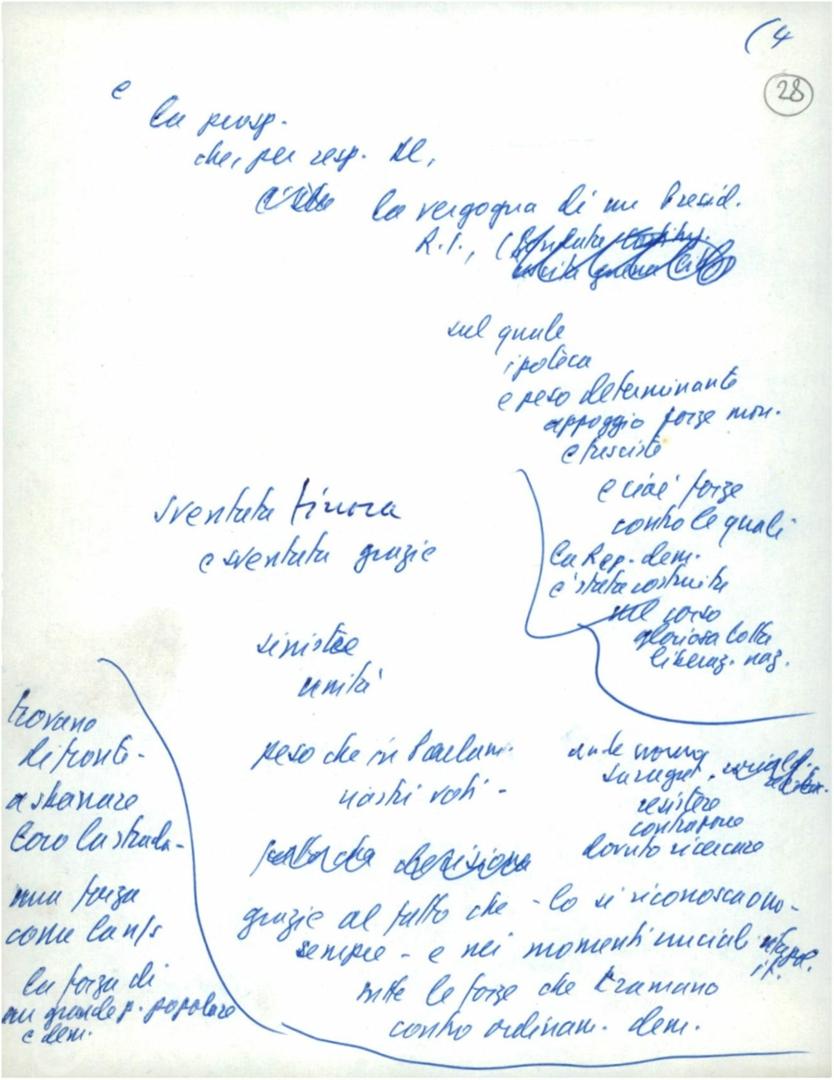 (4
28
e
la prosp.
che, per resp. DC,
la vergogna di un Presid.
R.I., (
sul quale
ipoteca
e peso determinante
appoggio forze mon.
e fasciste
e cioè forze
contro le quali
la Rep. dem.
è stata costruita
nel corso
gloriosa lotta
liberaz. naz.
sventata finora
e sventata grazie
sinistre
unità
peso che in Parlam.
nostri voti -
resistere
contrapporre
dovuto ricercare
grazie al fatto che - lo si riconosca o no -
sempre - e nei momenti cruciali
tutte le forze che tramano
contro ordinam. dem.
trovano
di fronte -
a sbarrare
loro la strada -
una forza
come la n/s
la forza di
un grande p. popolare
e dem.